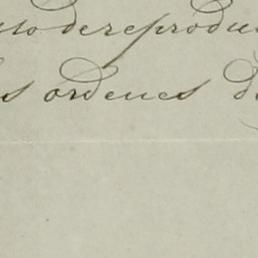 uso de reprodu
s ordenes d